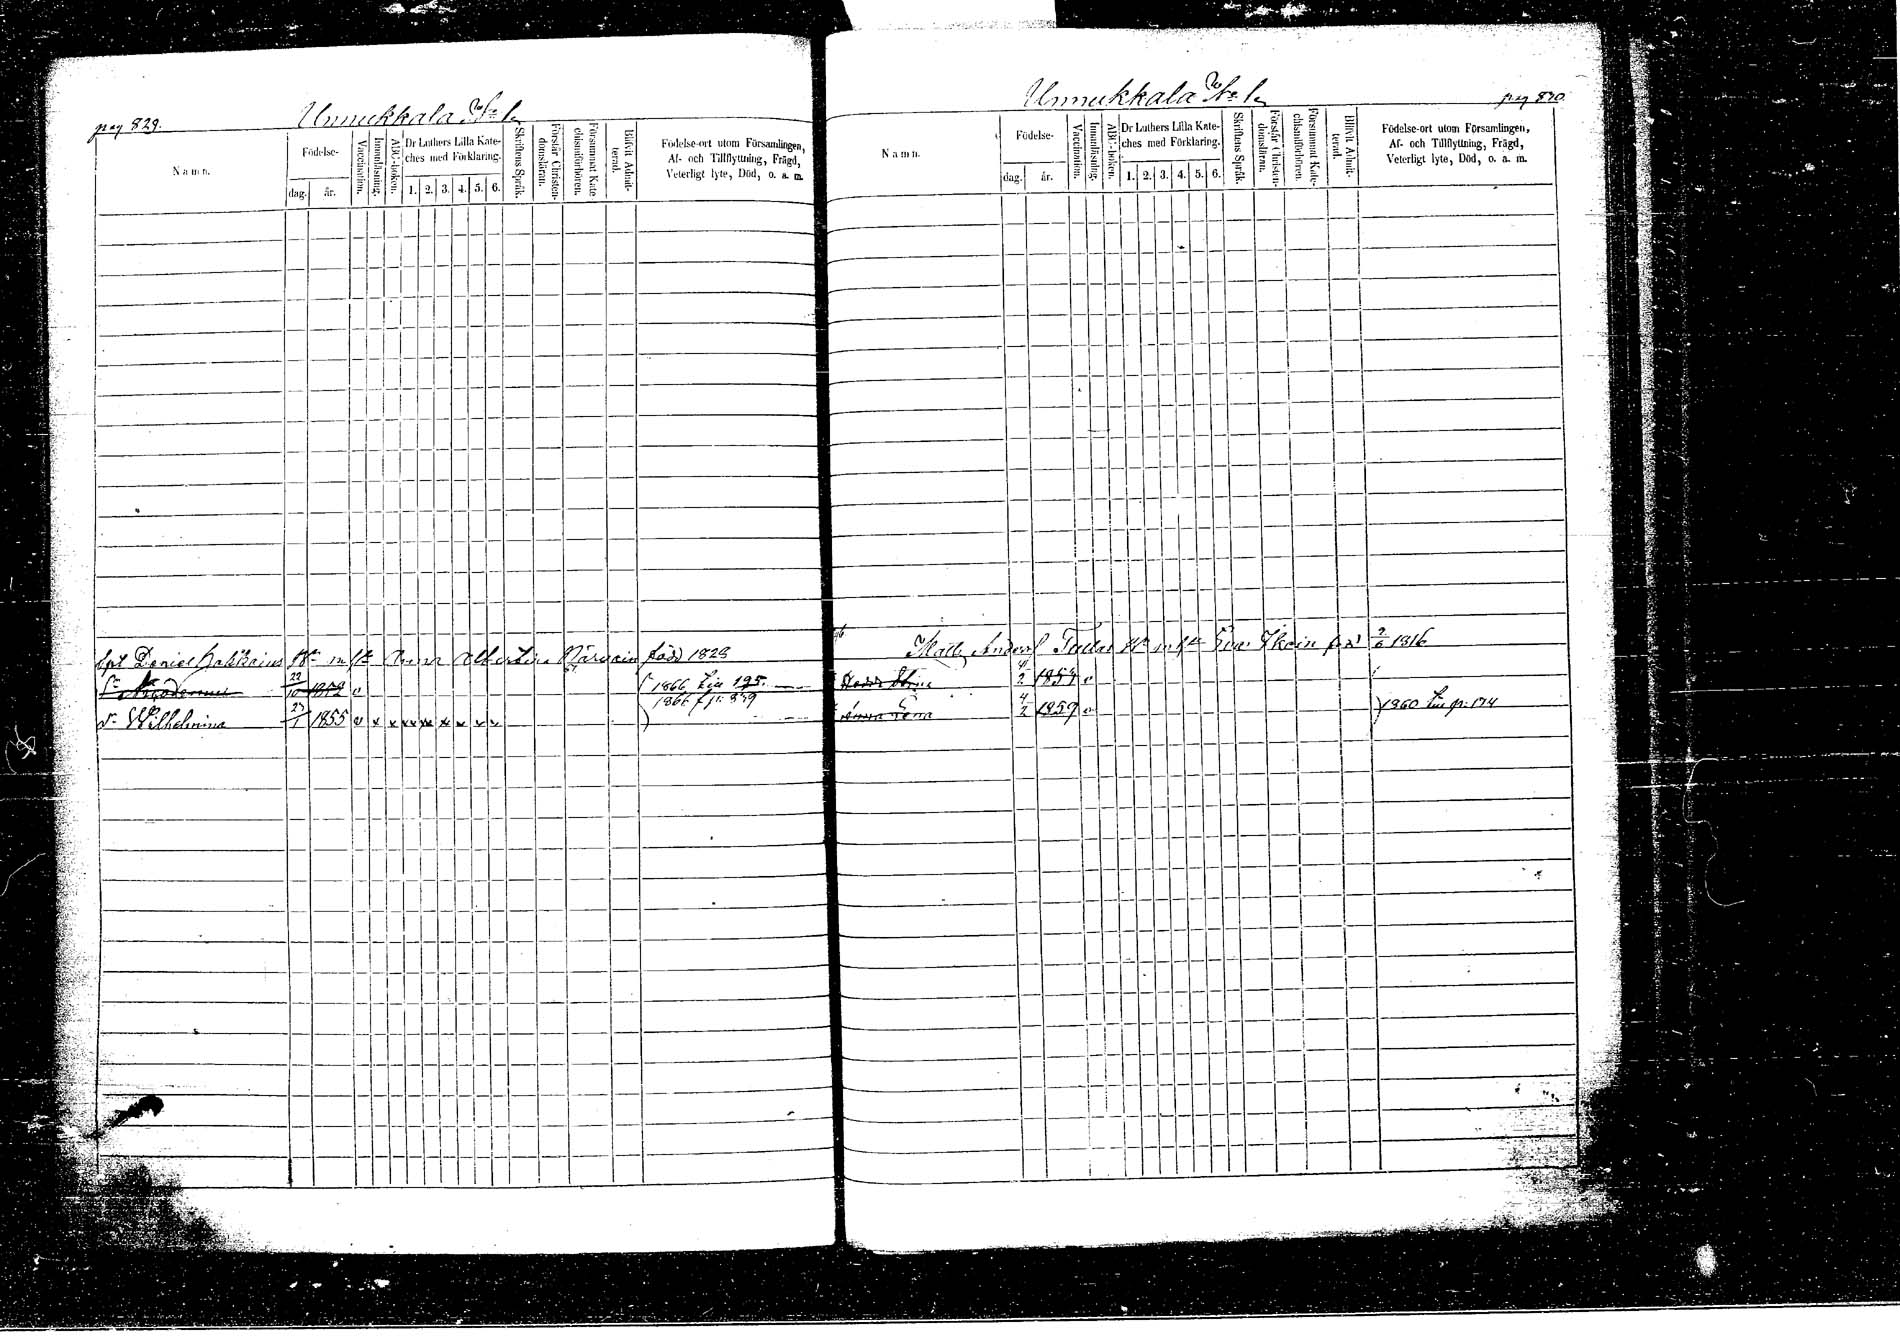 pag 829.
Unnukkala No 1
Namn.
Födelse-
dag.
år.
Vaccination.
Innanläsning.
ABC-boken.
Dr Luthers Lilla Kate-
ches med Förklaring.
1. 2. 3. 4. 5. 6.
Skriftens Språk.
Förstår Christen-
domsläran.
Försummat Kate
chismiförhören.
Blifvit Admit-
terad.
Födelse-ort utom Församlingen,
Af- och Tillflyttning, Frägd,
Veterligt lyte, Död, o. a. m.
född 1828
22/10 1852 v
1866 195.
1866 839
dr Wilhelmina 23/1 1855 v x x x x x x x x
Unnukkala No 1
pag 830
Namn.
Födelse-
dag.
år.
Vaccination.
Innanläsning.
ABC-boken.
Dr Luthers Lilla Kate-
ches med Förklaring.
1. 2. 3. 4. 5. 6.
Skriftens Språk.
Förstår Christen-
domsläran.
Försummat Kate-
chismiförhören.
Blifvit Admit-
terad.
Födelse-ort utom Församlingen,
Af- och Tillflyttning, Frägd,
Veterligt lyte, Död, o. a. m.
Anders 1816
1854 v
Anna Lena 4/2 1859 v 1860 174